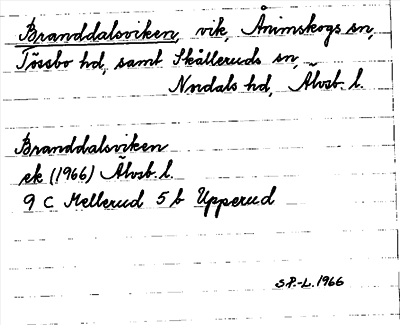 Branddalsviken, vik, Ånimskogs sn,
Tössbo hd, samt Skålleruds sn,
Nordals hd, Älvsb. l.
Branddalsviken
ek (1966) Älvsb. l.
9 C Mellerud 5 b Upperud
S.P.-L. 1966